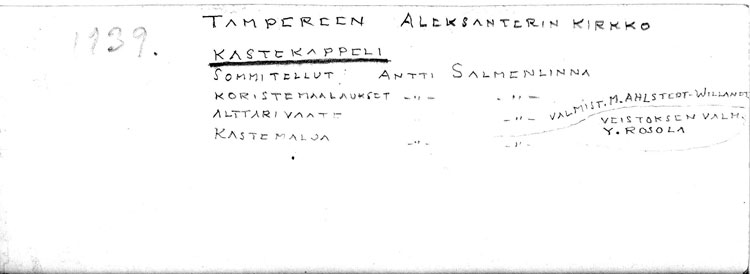 TAMPEREEN ALEKSANTERIN KIRKKO
1939.
KASTEKAPPELI
SOMMITELLUT: ANTTI SALMENLINNA
KORISTEMAALAUKSET -"- -"-
ALTTARIVAATE -"- VALMIST. M. AHLSTEDT-WILLANDT
KASTEMALJA -"- -"- VEISTOKSEN VALM.
Y. ROSOLA